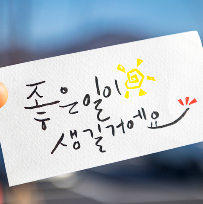 좋은일이
생길거에요